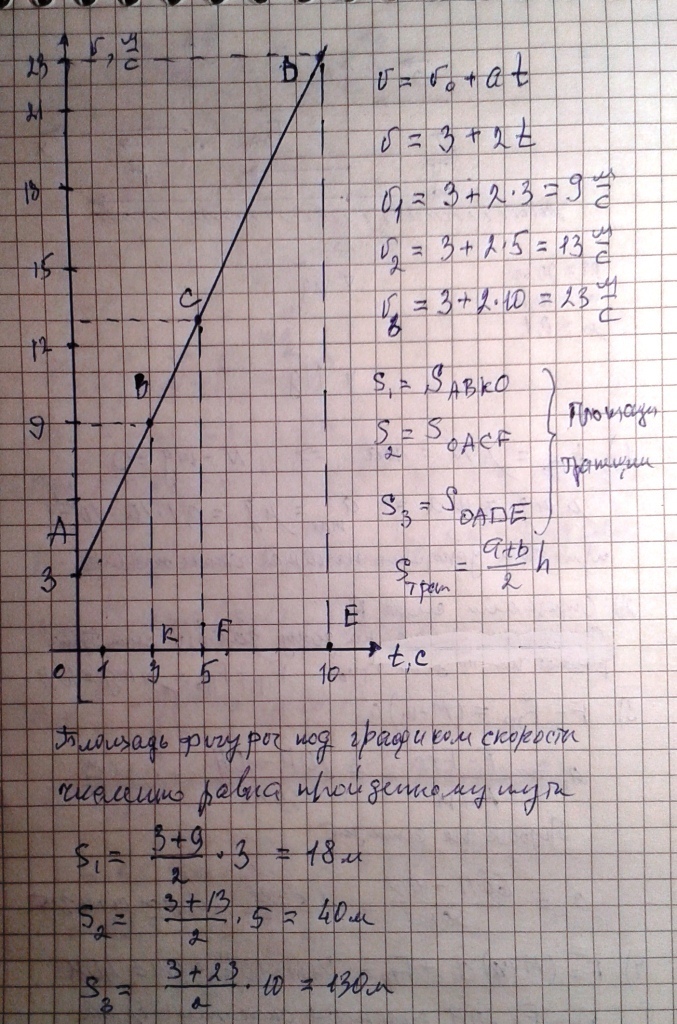 v, м/с
23
21
18
15
12
9
3
A
B
C
D
K
F
E
0 1 3 5 10 t, c
v = v₀ + at
v = 3 + 2t
v₁ = 3 + 2·3 = 9 м/с
v₂ = 3 + 2·5 = 13 м/с
v₃ = 3 + 2·10 = 23 м/с
S₁ = S ABKO
S₂ = S OACF
S₃ = S OADE
Площади
трапции
S трап = (a+b)/2 h
Площадь фигуры под графиком скорости
численно равна пройденному пути
S₁ = (3+9)/2 · 3 = 18м
S₂ = (3+13)/2 · 5 = 40м
S₃ = (3+23)/2 · 10 = 130м